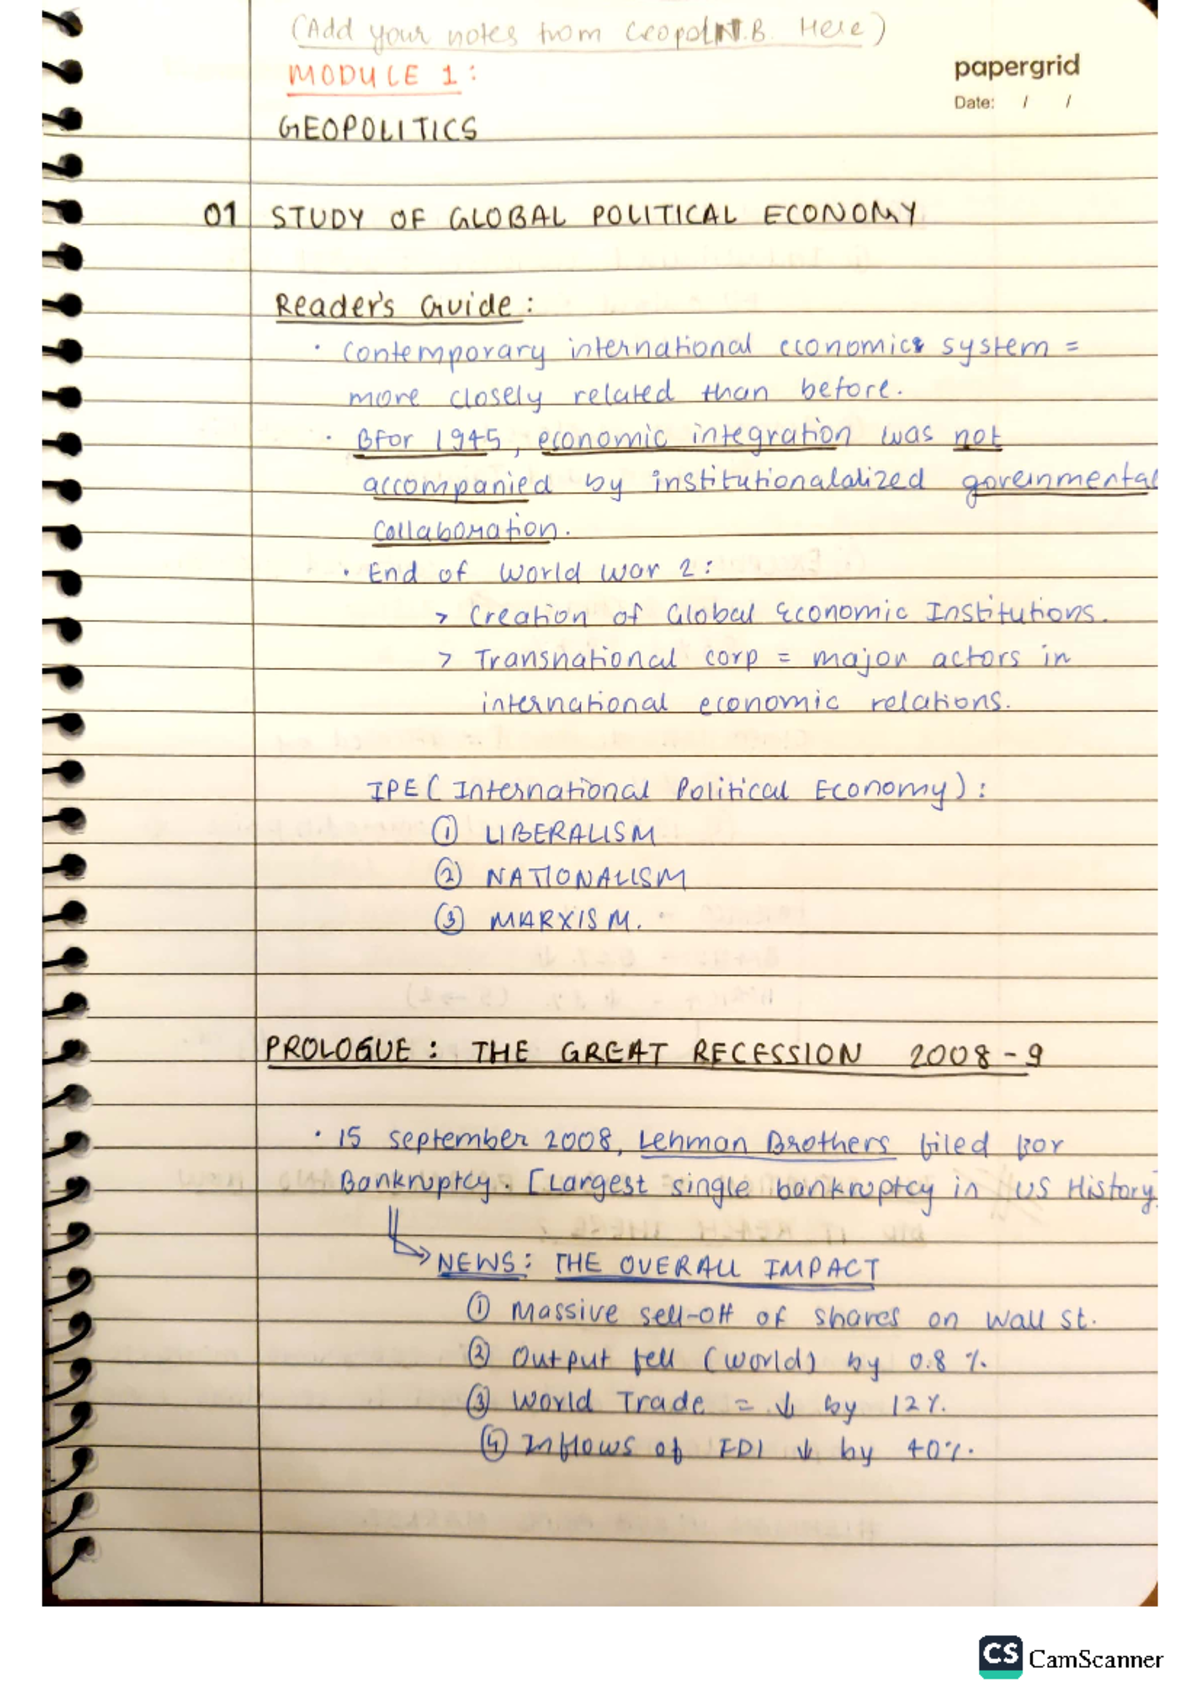 (Add your notes from Geopol N.B. Here)
MODULE 1:
papergrid
Date: / /
GEOPOLITICS
01 STUDY OF GLOBAL POLITICAL ECONOMY
Reader's Guide:
· Contemporary international economics system =
more closely related than before.
· Bfor 1945, economic integration was not
accompanied by institutionalalized governmental
collaboration.
· End of World War 2:
> Creation of Global Economic Institutions.
> Transnational corp = major actors in
international economic relations.
IPE (International Political Economy):
① LIBERALISM
② NATIONALISM
③ MARXISM.
PROLOGUE: THE GREAT RECESSION 2008-9
· 15 September 2008, Lehman Brothers filed for
Bankruptcy. [Largest single bankruptcy in US History]
NEWS: THE OVERALL IMPACT
① Massive sell-off of shares on Wall St.
② Output fell (World) by 0.8 %.
③ World Trade = ↓ by 12%.
④ Inflows of FDI ↓ by 40%.
CS CamScanner